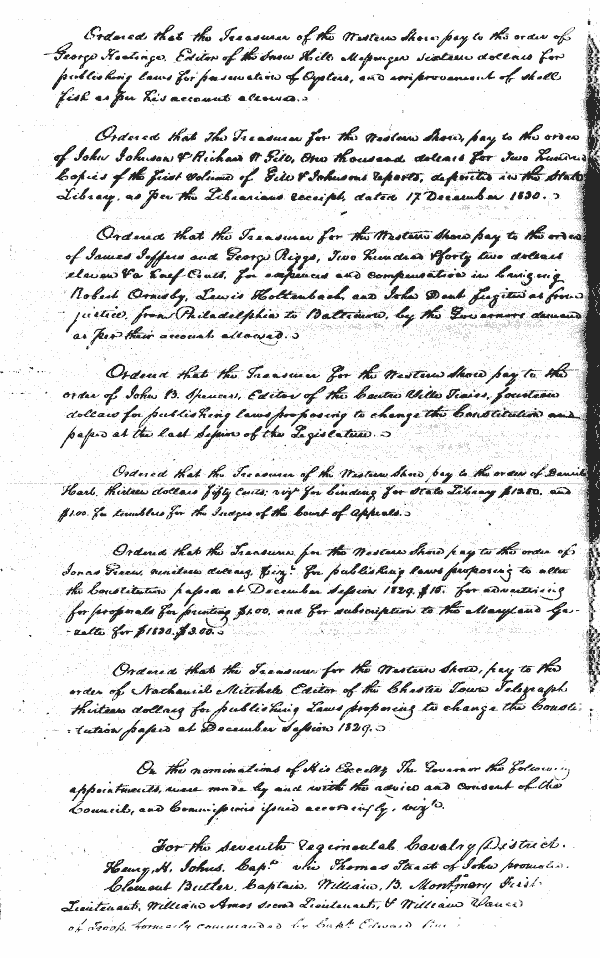 Ordered that the Treasurer of the Western Shore pay to the order of
George Keatinge, Editor of the Snow Hill Messenger sixteen dollars for
publishing laws for preservation of Oysters, and improvement of shell
fish as per his account allowed.
Ordered that The Treasurer for the Western Shore, pay to the order
of John Johnson & Richard W Gill, One thousand dollars for Two hundred
Copies of the first volume of Gill & Johnsons reports, deposited in the State
Library, as per the Librarians receipt, dated 17 December 1830.
Ordered that the Treasurer for the Western Shore pay to the order
of James Jeffers and George Riggs, Two hundred & forty two dollars
eleven & a half Cents, for expences and compensation in bringing
Robert Ormsby, Lewis Holtenbach, and John Dent fugitives from
justice, from Philadelphia to Baltimore, by the Governors demand
as per their account allowed.
Ordered that the Treasurer for the Western Shore pay to the
order of John B. Spencer, Editor of the Centre Ville Times, fourteen
dollars for publishing laws proposing to change the Constitution and
passed at the last Session of the Legislature.
Ordered that the Treasurer of the Western Shore, pay to the order of Daniel
Hart, thirteen dollars fifty Cents, viz for binding for State Library $12.50. and
$1.00. for tumblers for the Judges of the Court of Appeals.
Ordered that the Treasurer for the Western Shore pay to the order of
Jonas Green, nineteen dollars, viz. for publishing laws proposing to alter
the Constitution passed at December Session 1829, $15. for advertising
for proposals for printing $1.00, and for subscription to the Maryland Ga-
-zette for 1830. $3.00.
Ordered that the Treasurer for the Western Shore, pay to the
order of Nathaniel Mitchell Editor of the Chester Town Telegraph
thirteen dollars for publishing Laws proposing to change the Consti-
-tution passed at December Session 1829.
On the nominations of His Excelly The Governor the following
appointments, were made by and with the advice and consent of the
Council, and Commissions issued accordingly, viz.
For the seventh regimental Cavalry District.
Henry H. Johns, Capt. vice Thomas Streett of John promoted.
Clement Butler, Captain, William B. Montgomery First
Lieutenant, William Amos second Lieutenant, & William Vance
of Troop formerly commanded by Capt. Edward